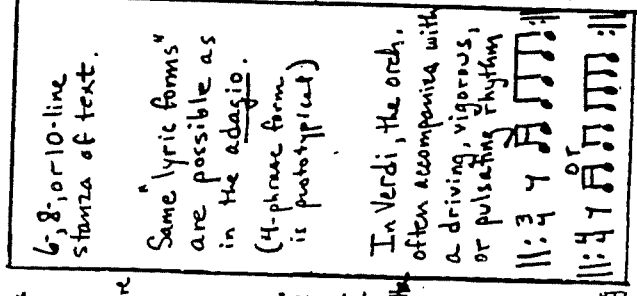 6-, 8-, or 10-line
stanza of text.
Same "lyric forms"
are possible as
in the adagio.
(4-phrase form
is prototypical)
In Verdi, the orch.
often accompanies with
a driving, vigorous,
or pulsating rhythm
3 4
or
4 4
re